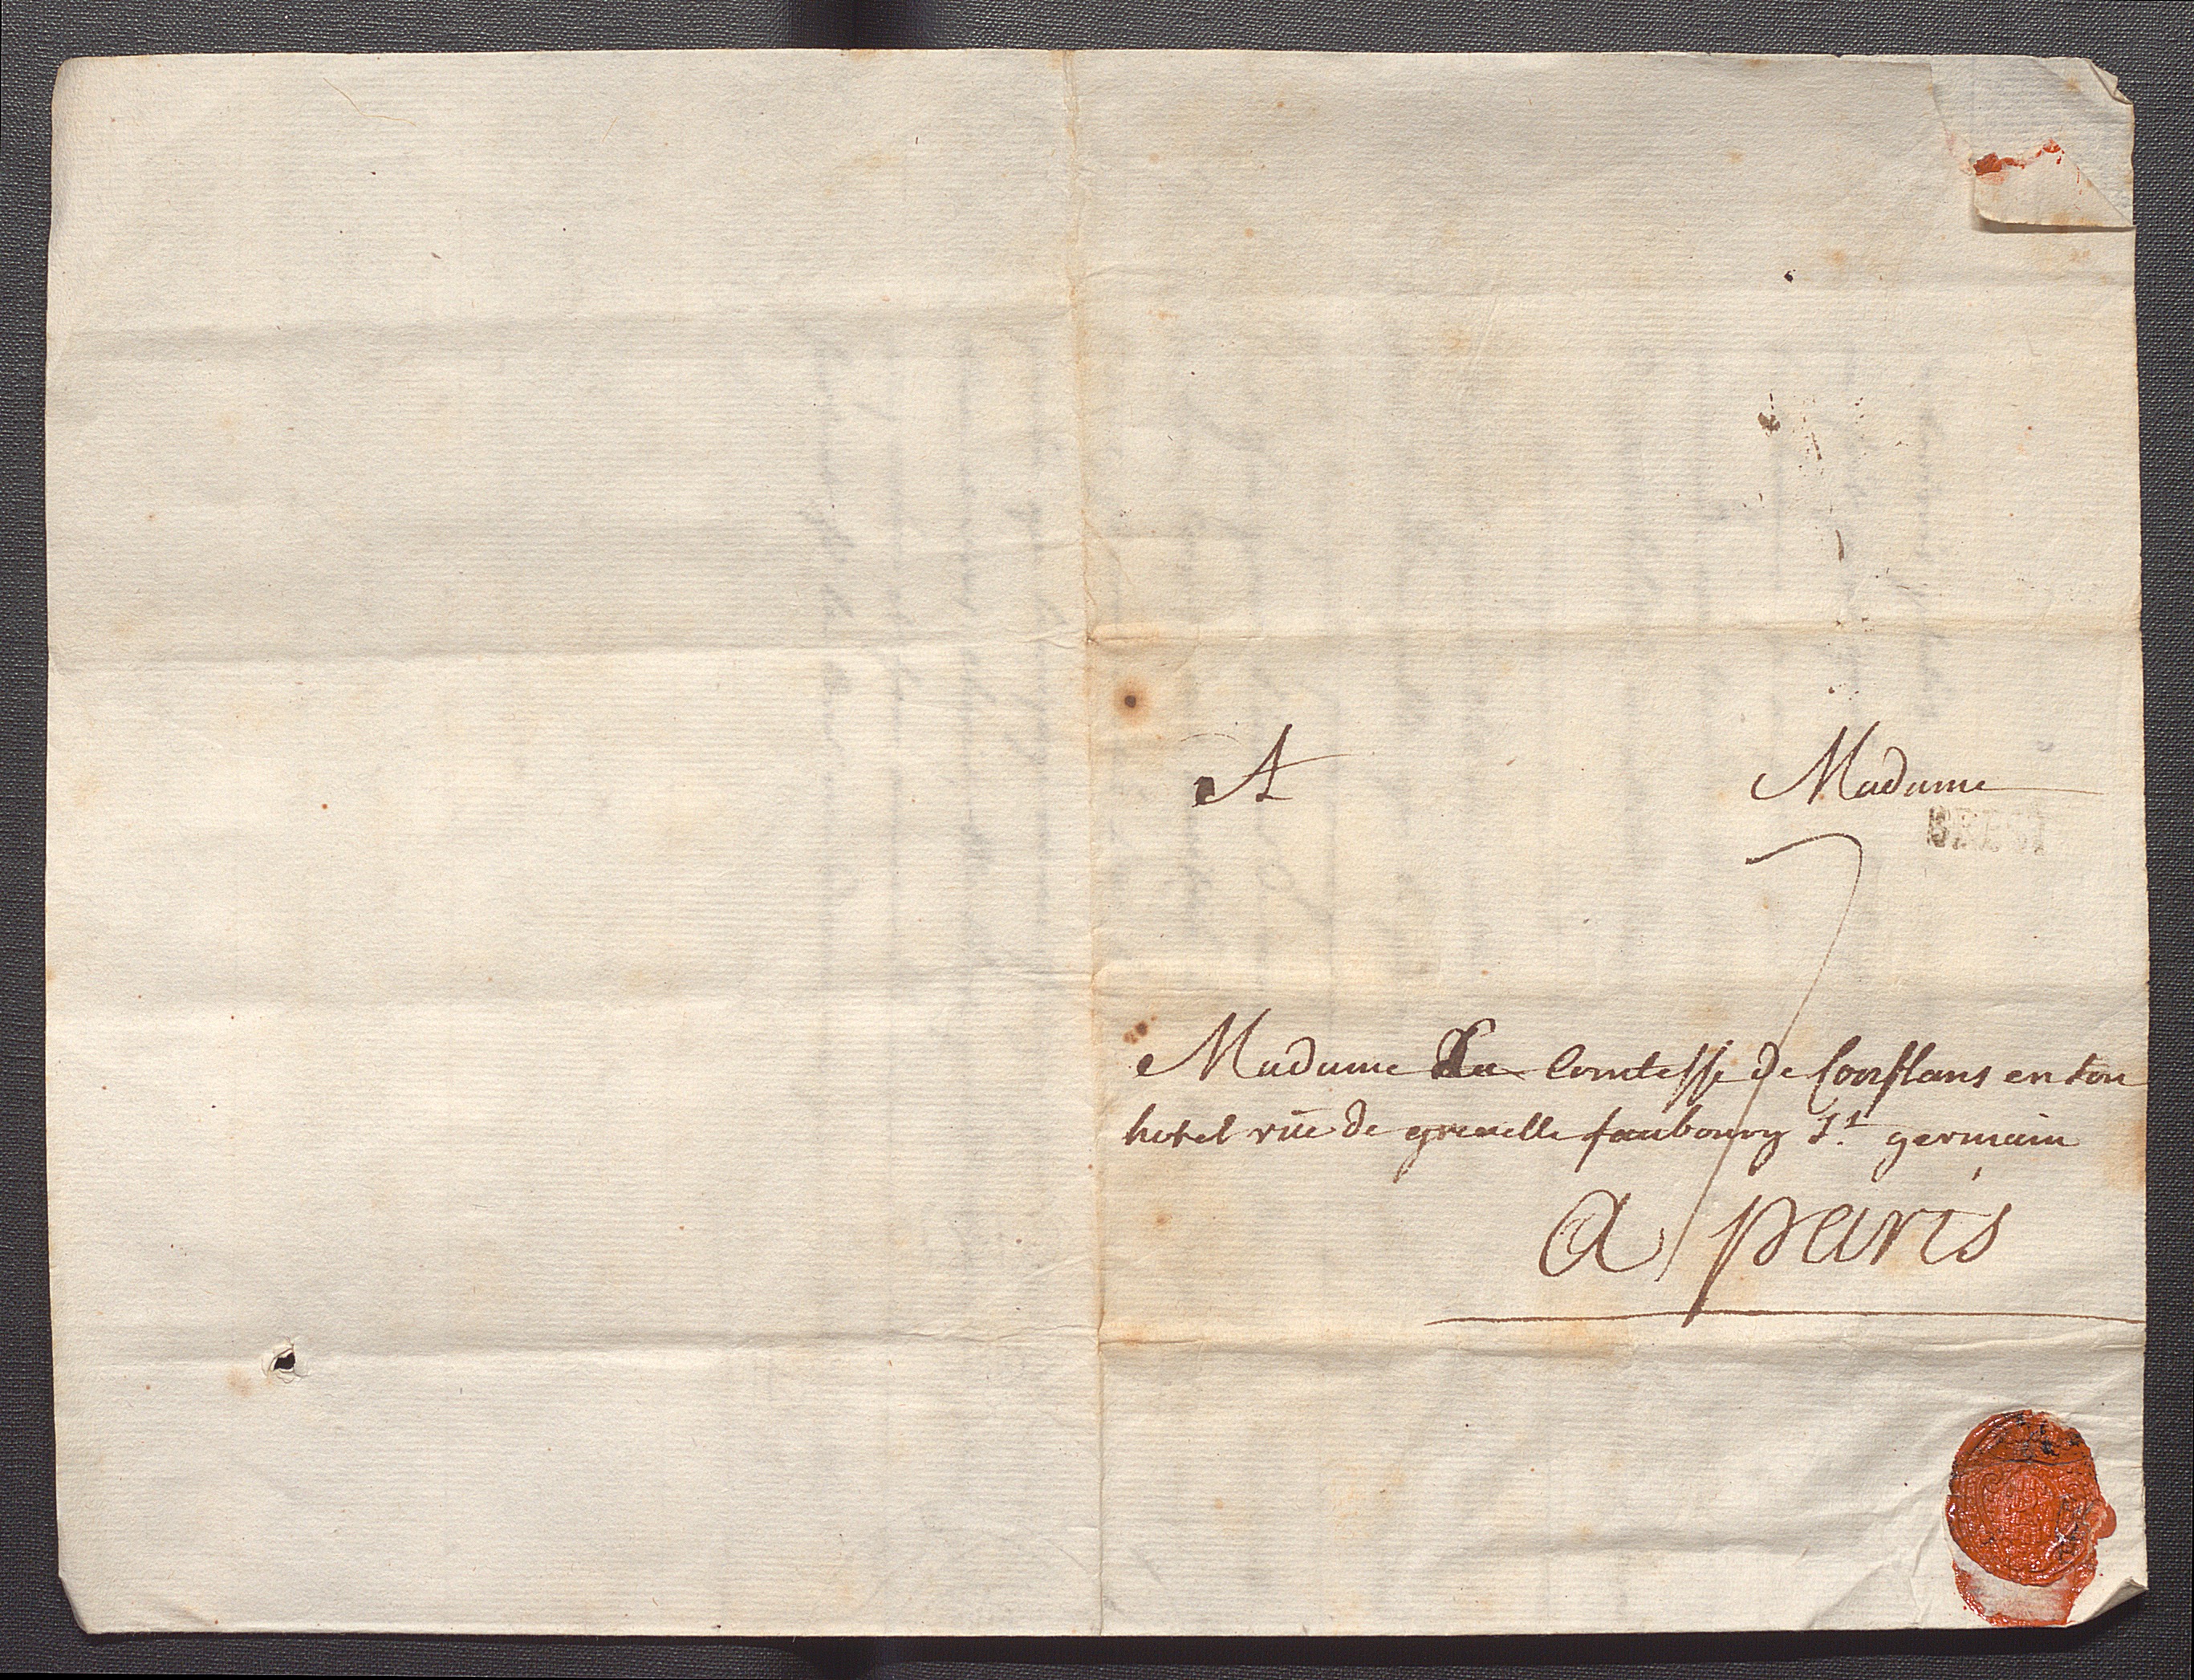 A Madame
BREST
7
Madame La Comtesse de Conflans en son
hotel rüe de grenelle faubourg St germain
a paris